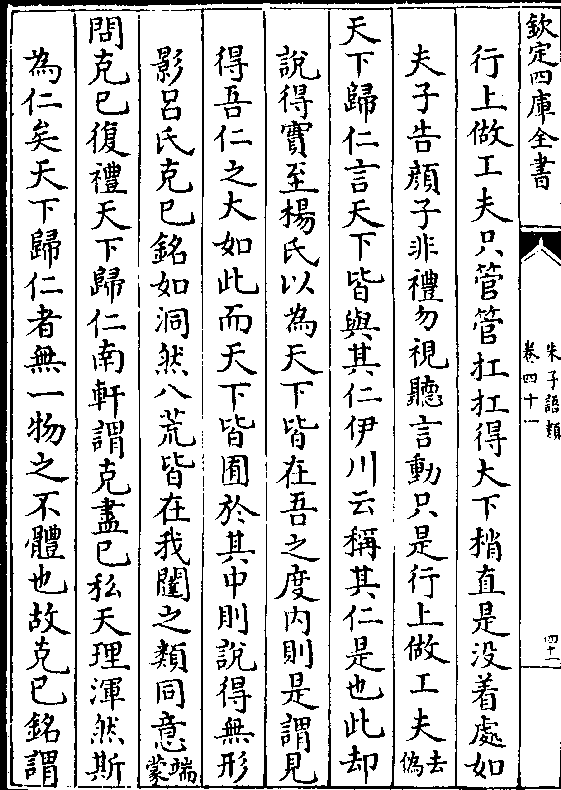 欽定四庫全書
朱子語類
卷四十一
四十二
行上做工夫只管管扛扛得大下梢直是没着處如
夫子告顔子非禮勿視聽言動只是行上做工夫去偽
天下歸仁言天下皆與其仁伊川云稱其仁是也此却
說得實至楊氏以為天下皆在吾之度内則是謂見
得吾仁之大如此而天下皆囿於其中則說得無形
影吕氏克已銘如洞然八荒皆在我闥之類同意端蒙
問克已復禮天下歸仁南軒謂克盡已私天理渾然斯
為仁矣天下歸仁者無一物之不體也故克已銘謂